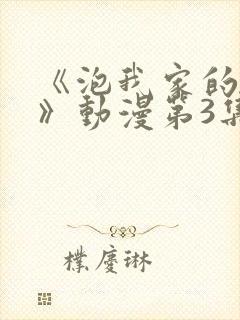 《泡我家的
》動漫第3集
樸慶琳